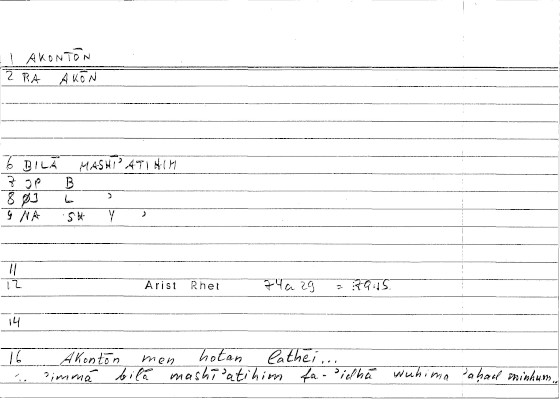 1 AKONTŌN
2 RA AKŌN
6 BILĀ MASHĪʾATIHIM
7 JP B
8 ØJ L ʾ
9 NA SH Y ʾ
11
12 Arist Rhet 74a 29 = 79.15
14
16 Akontōn men hotan lathēi...
... ʾimmā bilā mashīʾatihim fa-ʾidhā wuhima ʾaḥad minhum..